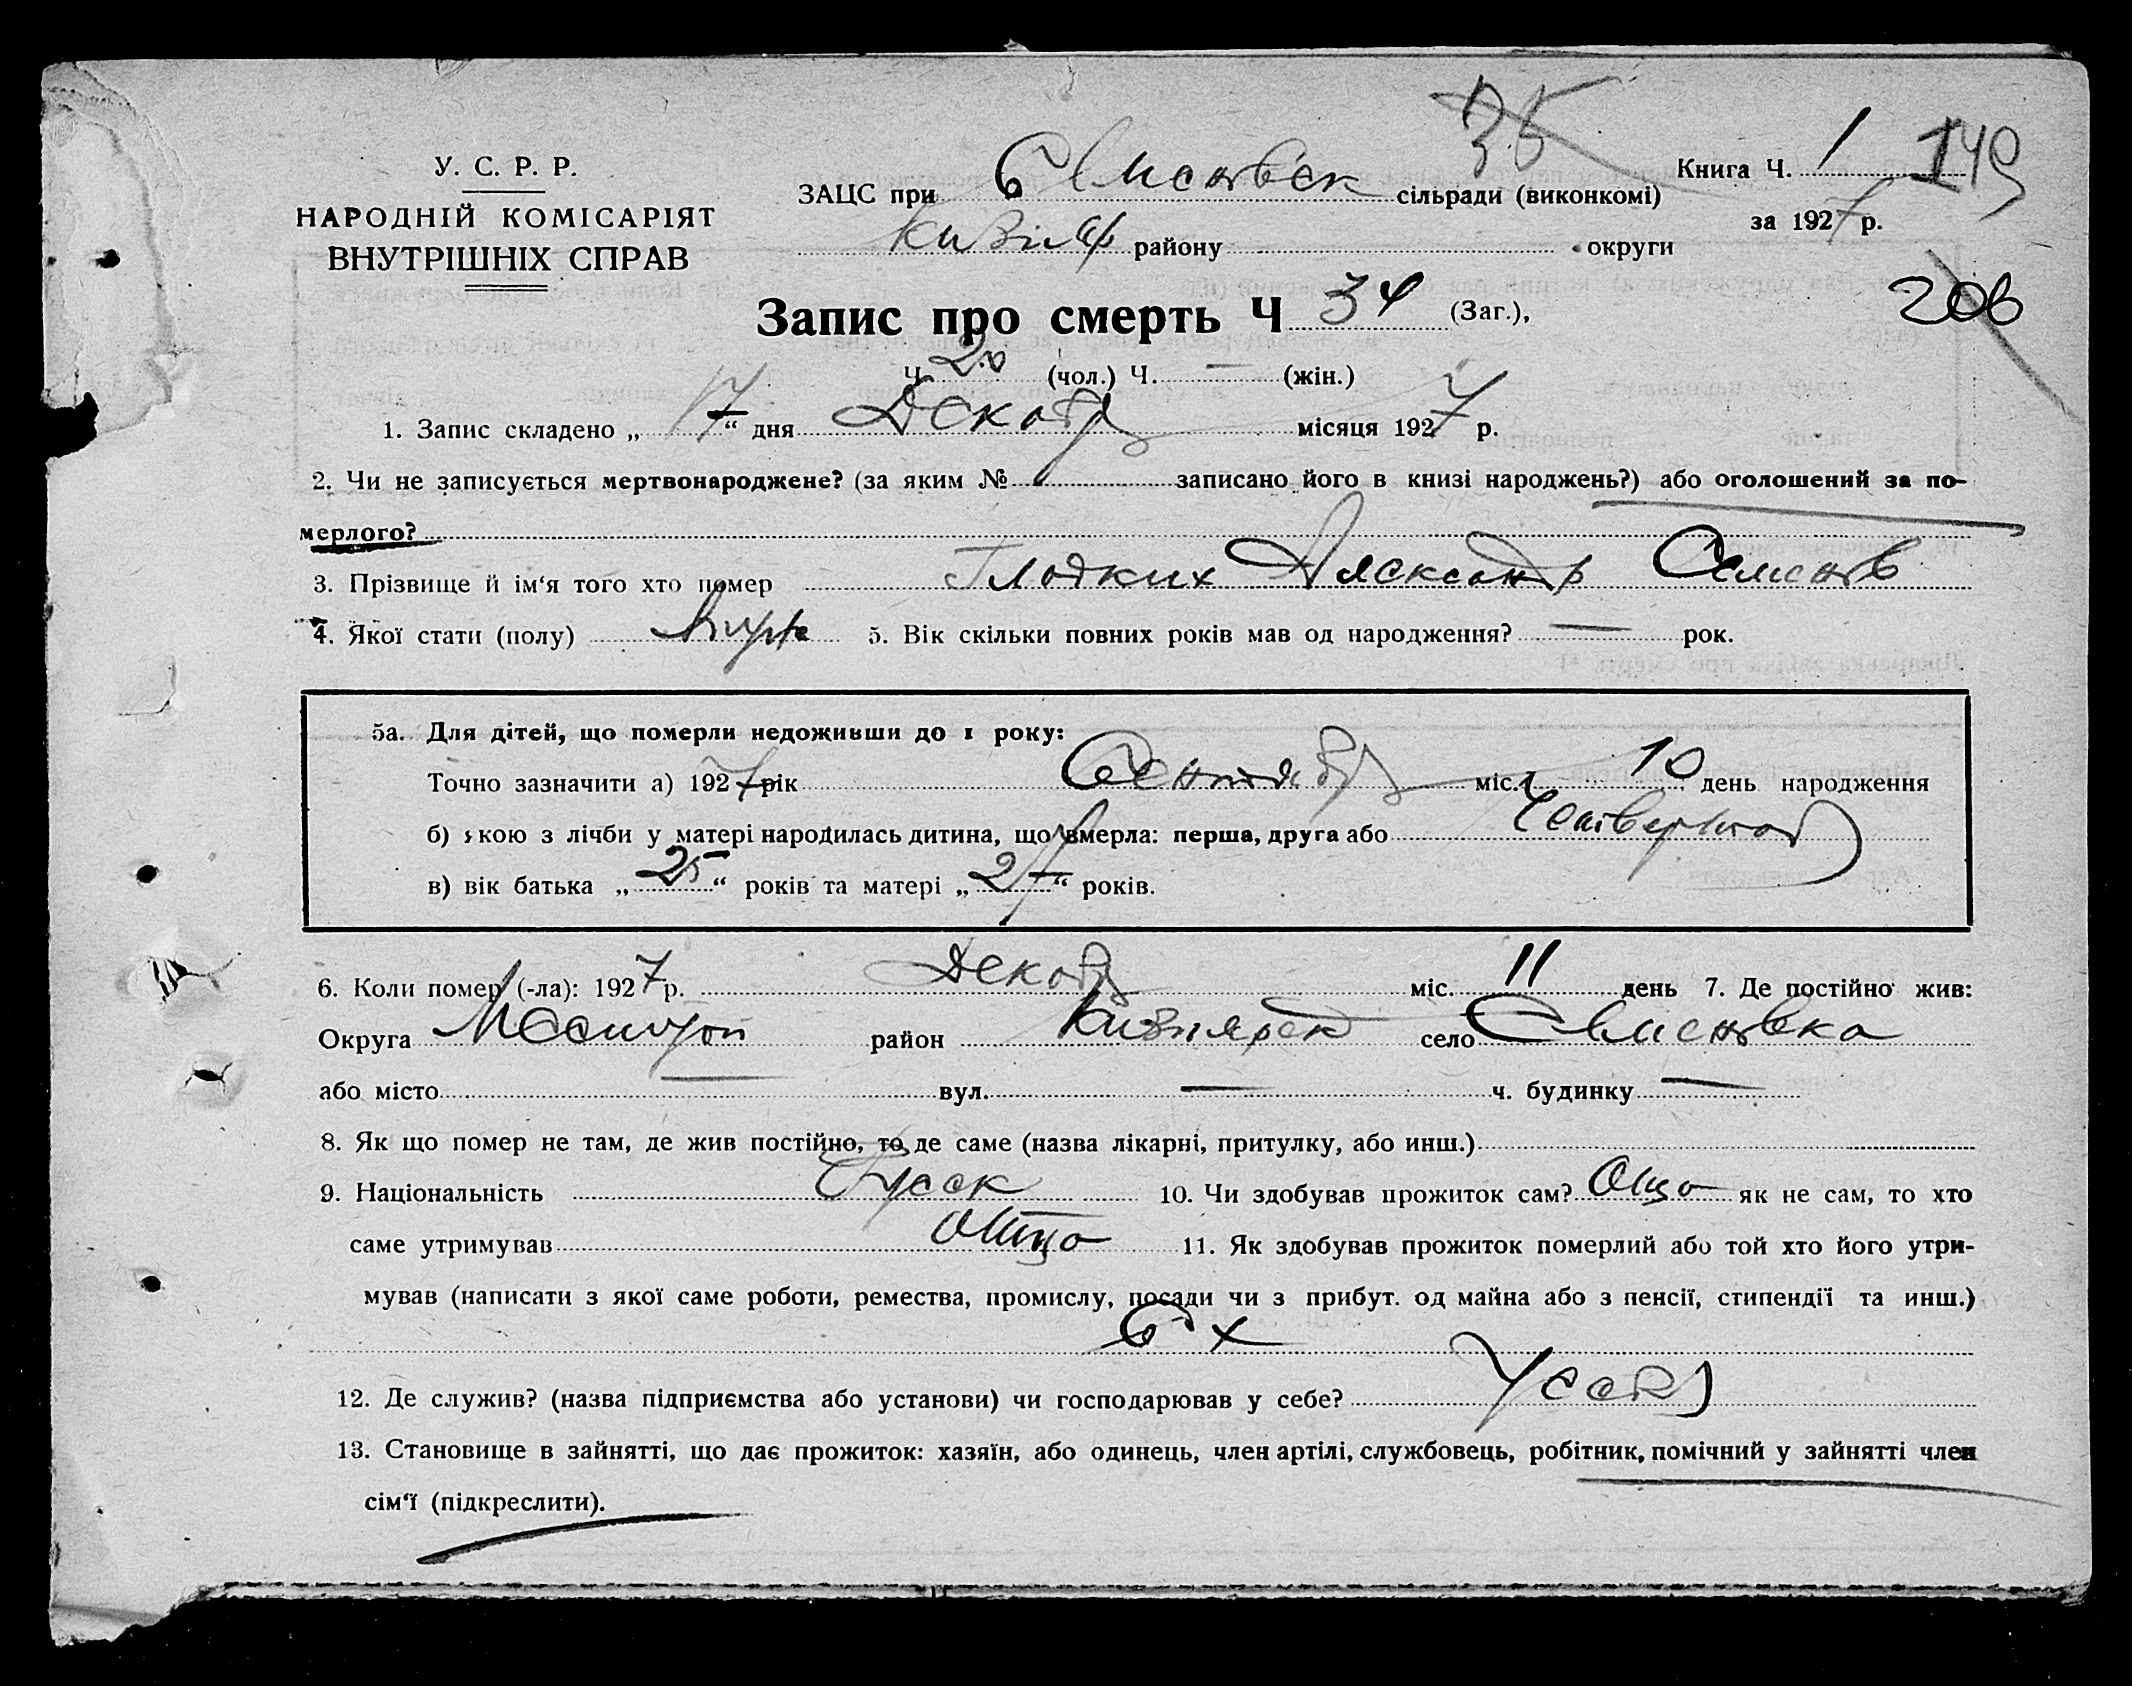 35
У. С. Р. Р.
НАРОДНІЙ КОМІСАРІЯТ
ВНУТРІШНІХ СПРАВ
Книга Ч. 1 149
ЗАЦС при Семеновск сільради (виконкомі)
за 1927 р.
Кизіяр району округи
206
Запис про смерть Ч 34 (Заг.),
Ч. 20 (чол.) Ч. — (жін.)
1. Запис складено „17“ дня Декабр місяця 1927 р.
2. Чи не записується мертвонароджене? (за яким № записано його в книзі народжень?) або оголошений за по-
мерлого?
3. Прізвище й ім‘я того хто помер Гладких Александр Семенов
4. Якої стати (полу) Муж 5. Вік скільки повних років мав од народження? — рок.
5а. Для дітей, що померли недоживши до 1 року:
Точно зазначити а) 1927 рік Сентябр міс. 10 день народження
б) якою з лічби у матері народилась дитина, що вмерла: перша, друга або
в) вік батька „25“ років та матері „27“ років.
6. Коли помер (-ла): 1927 р. Декабр міс. 11 день 7. Де постійно жив:
Округа район Кизиярск село Семеновка
або місто — вул. — ч. будинку —
8. Як що помер не там, де жив постійно, то де саме (назва лікарні, притулку, або инш.)
9. Національність Русск 10. Чи здобував прожиток сам? Отцо як не сам, то хто
саме утримував Отцо 11. Як здобував прожиток померлий або той хто його утри-
мував (написати з якої саме роботи, ремества, промислу, посади чи з прибут. од майна або з пенсії, стипендії та инш.)
С х
12. Де служив? (назва підприємства або установи) чи господарював у себе?
13. Становище в зайнятті, що дає прожиток: хазяїн, або одинець, член артілі, службовець, робітник, помічний у зайнятті член
сім‘ї (підкреслити).